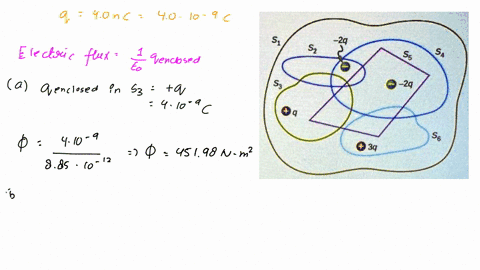 q = 4.0 nC = 4.0 · 10 -9 C
Electric flux = 1/ε0 qenclosed
(a) qenclosed in S3 = +q
= 4 · 10 -9 C
φ = 4 · 10 -9 / 8.85 · 10 -12 => φ = 451.98 N·m²
b
S1
S2
-2q
S5
S4
S3
-2q
q
S6
3q